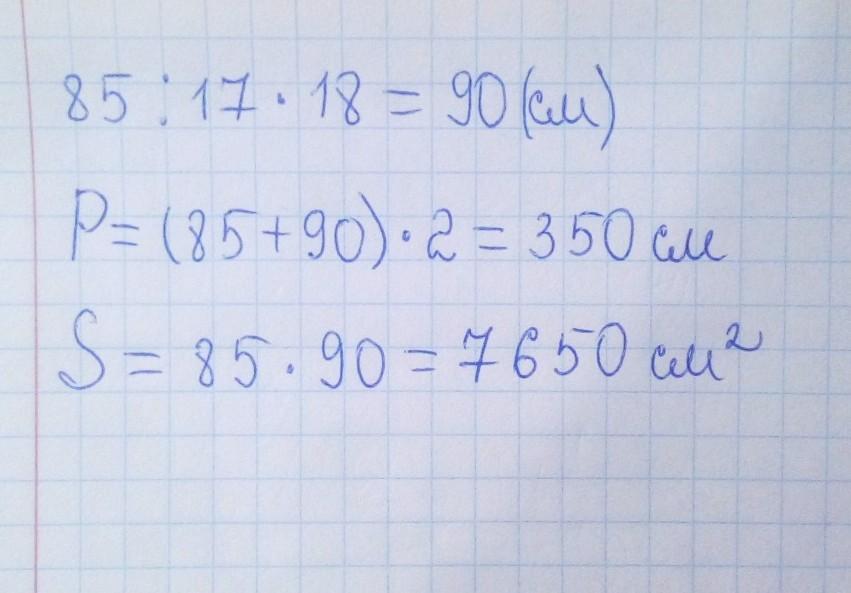 85 : 17 · 18 = 90 (см)
P = (85 + 90) · 2 = 350 см
S = 85 · 90 = 7650 см²